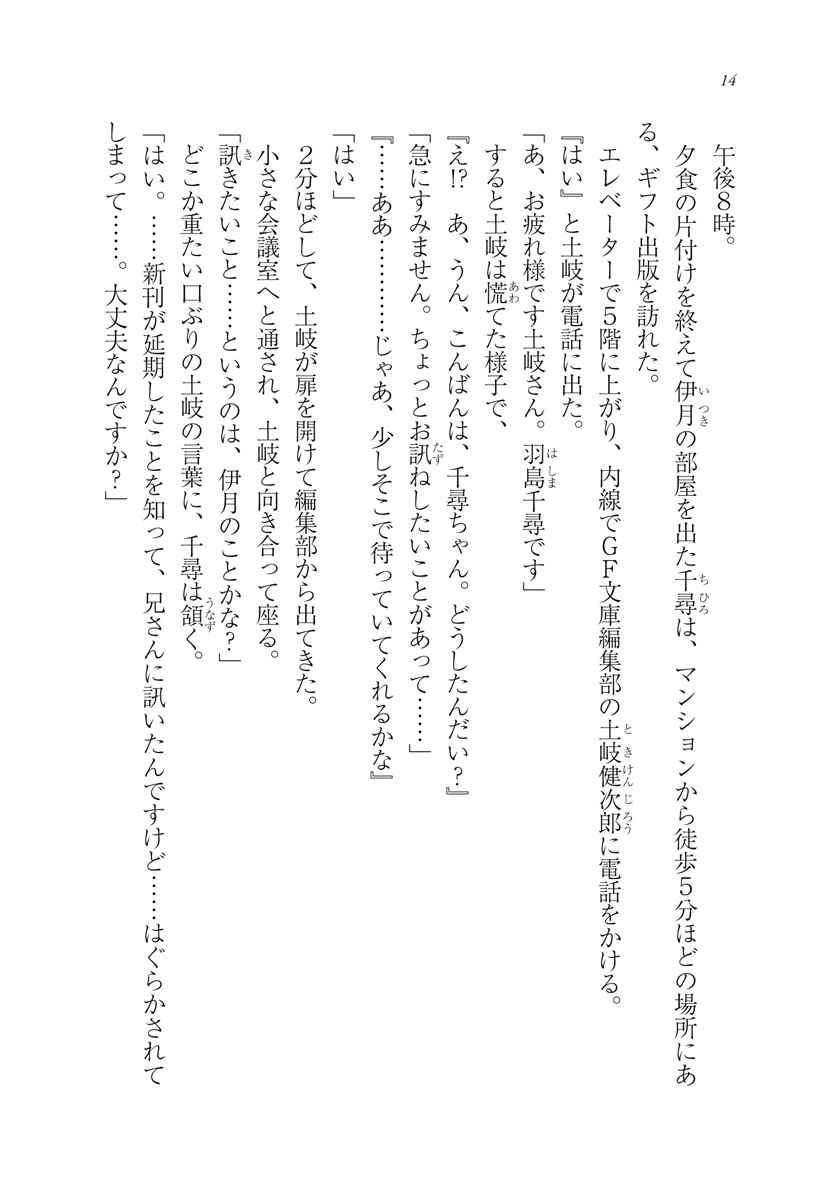 14
午後８時。
夕食の片付けを終えて伊月の部屋を出た千尋は、マンションから徒歩５分ほどの場所にあ
る、ギフト出版を訪れた。
エレベーターで５階に上がり、内線でＧＦ文庫編集部の土岐健次郎に電話をかける。
『はい』と土岐が電話に出た。
「あ、お疲れ様です土岐さん。羽島千尋です」
すると土岐は慌てた様子で、
『え!?　あ、うん、こんばんは、千尋ちゃん。どうしたんだい？』
「急にすみません。ちょっとお訊ねしたいことがあって……」
『……ああ…………じゃあ、少しそこで待っていてくれるかな』
「はい」
２分ほどして、土岐が扉を開けて編集部から出てきた。
小さな会議室へと通され、土岐と向き合って座る。
「訊きたいこと……というのは、伊月のことかな？」
どこか重たい口ぶりの土岐の言葉に、千尋は頷く。
「はい。……新刊が延期したことを知って、兄さんに訊いたんですけど……はぐらかされて
しまって……。大丈夫なんですか？」